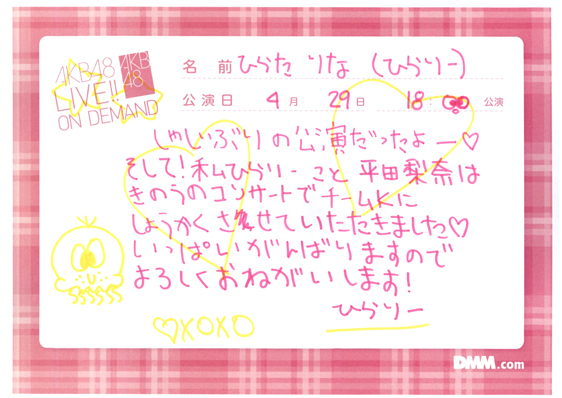 AKB48
LIVE!!
ON DEMAND
AKB
48
名 前 ひらた りな (ひらりー)
公演日 4月 29日 18:00 公演
じゅしぶりの公演だったよー♡
そして!私ひらりーこと平田梨奈は
きのうのコンサートでチームKに
しょうかくさせていただきました♡
いっぱいがんばりますので
よろしくおねがいします!
ひらりー
♡XOXO
DMM.com